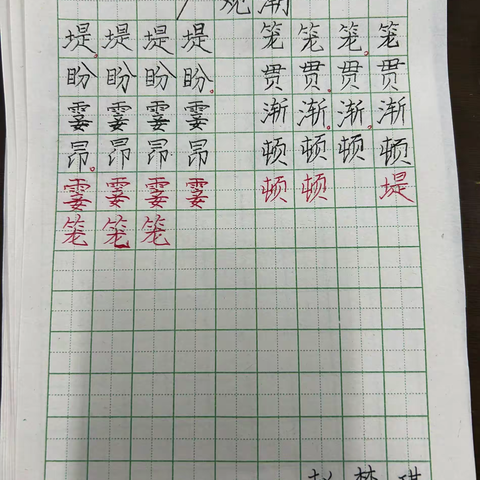 1 观潮
堤堤堤堤 笼笼笼笼
盼盼盼盼 贯贯贯贯
霎霎霎霎 渐渐渐渐
昂昂昂昂 顿顿顿顿
霎霎霎霎 顿顿 堤
笼笼笼
赵梦琪